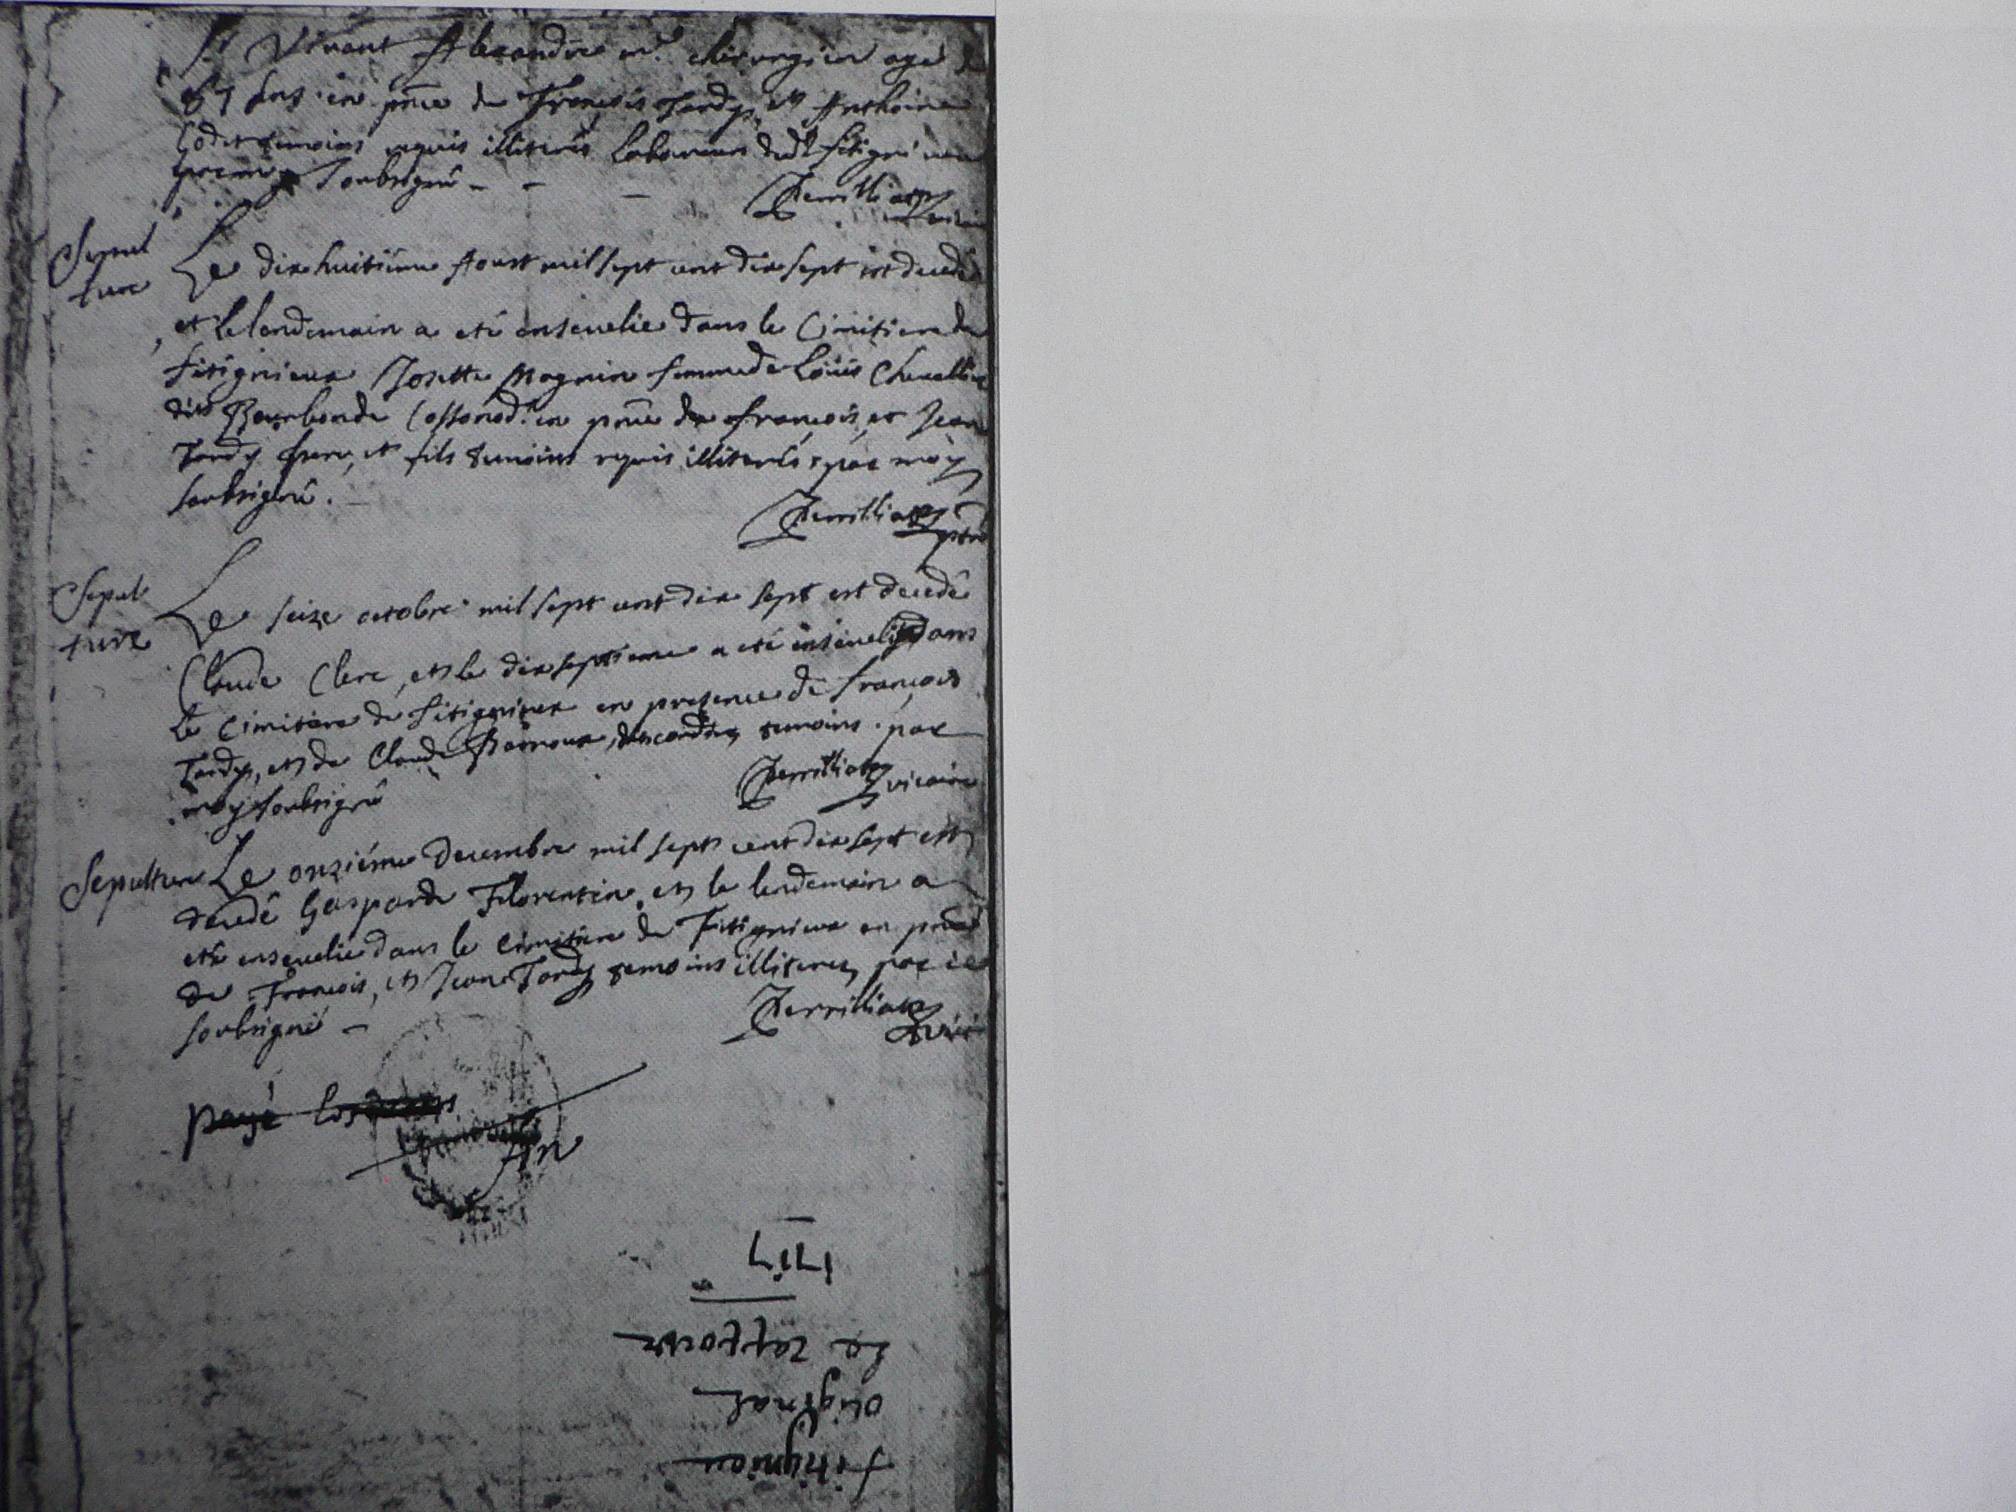 Sr Vivant Alexandre me. chirurgien agé de
67 Ans en pnce de François Tardy, et Anthoine
Godet temoins requis illiterés Laboureurs dudt fitignieux
par moy soubsigné - - -
Perrilliat vicaire
Sepul
ture
Le dix huitième Aoust mil sept cent dix sept est decedé
et le lendemain a eté ensevelie dans le Cimitiere de
fitignieux Josette Magnin femme de Loüis Chevallier
dit Bourbon de Cossonod. en pnce de françois, et Jean
Tardy pere, et fils temoins requis illiterés par moy
soubsigné. -
Perrilliat ptre
Sepul
ture
Le seize octobre mil sept cent dix sept est decedé
Claude Clerc, et le dix septieme a eté enseveli dans
le Cimitiere de fitignieux en presence de françois
Tardy, et de Claude temoins par
moy soubsigné
Perrilliat vicaire
Sepulture Le onziéme decembre mil sept cent dix sept est
decedé Gasparde Florentin, et le lendemain a
eté ensevelie dans le Cimitiere de Fitignieux en pnce
de François, et Jean Tardy temoins illiteres, par ie
soubsigné -
Perrilliat vic
payé les
fin
1717
La rapporté
original
fitignieu